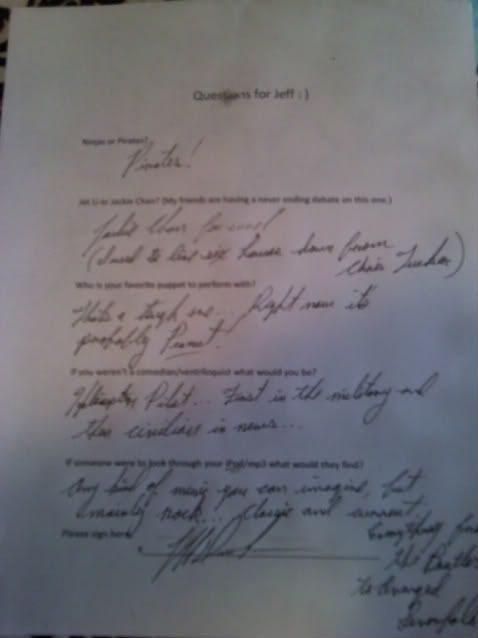 Questions for Jeff : )
Ninjas or Pirates?
Pirates!
Jet Li or Jackie Chan? (My friends are having a never ending debate on this one.)
Jackie Chan for sure!
(I used to live six houses down from
Chris Tucker)
Who is your favorite puppet to perform with?
That's a tough one... Right now it's
probably Peanut!
If you weren't a comedian/ventriloquist what would you be?
Helicopter Pilot... First in the military and
then civilian in news...
If someone were to look through your iPod/mp3 what would they find?
Any kind of music you can imagine, but
mainly rock... classic and current.
Everything from
the Beatles
to Avenged
Sevenfold
Please sign here
x